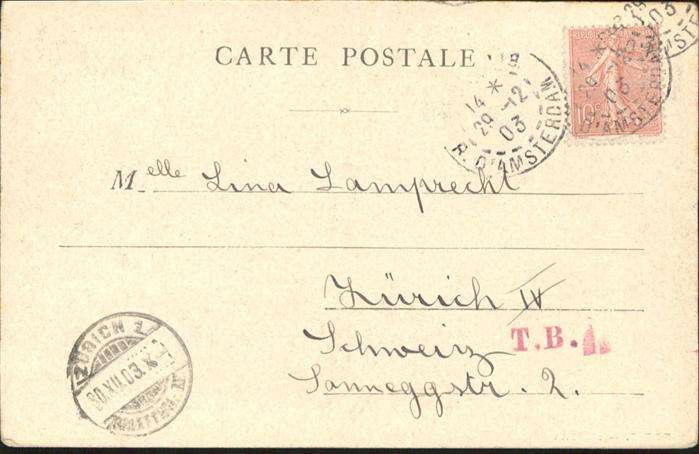 CARTE POSTALE
14 *
29 -12
03
R. D'AMSTERDAM
10c
03
R. D'AMSTERDAM
03
Melle Lina Lamprecht
Zürich IV
Schweiz
T.B.
Sonneggstr. 2.
ZÜRICH 1